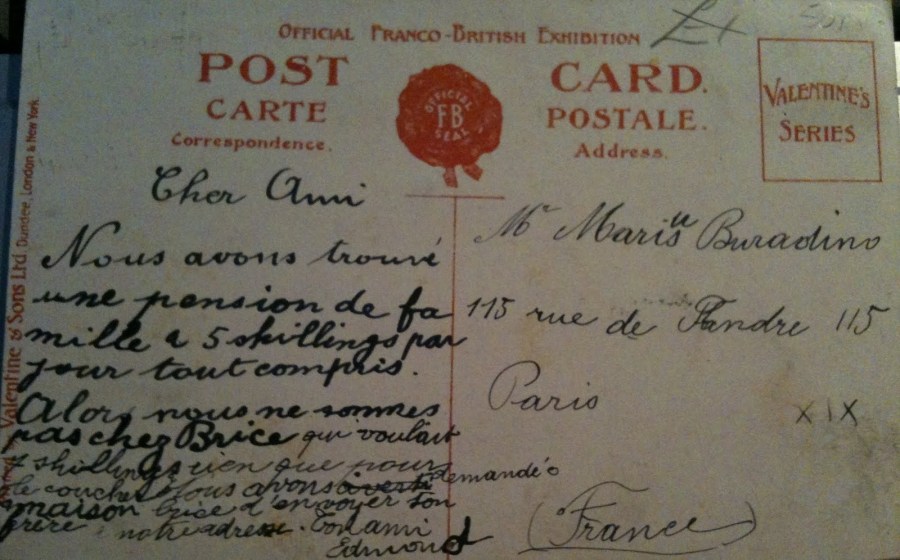 OFFICIAL FRANCO-BRITISH EXHIBITION
POST CARD.
CARTE POSTALE.
Correspondence. Address.
OFFICIAL
FB
SEAL
VALENTINE'S
SERIES
Valentine & Sons Ltd. Dundee, London & New York.
Cher Ami
Nous avons trouvé
une pension de fa
mille a 5 shillings par
jour tout compris.
Alors nous ne sommes
pas chez Brice qui voulait
7 shillings rien que pour
le coucher Nous avons demandé à
maison Brice d'envoyer son
frère notre adresse. Ton ami
Edmond
Mr Marius Buradino
115 rue de Flandre 115
Paris
XIX
(France)
£1